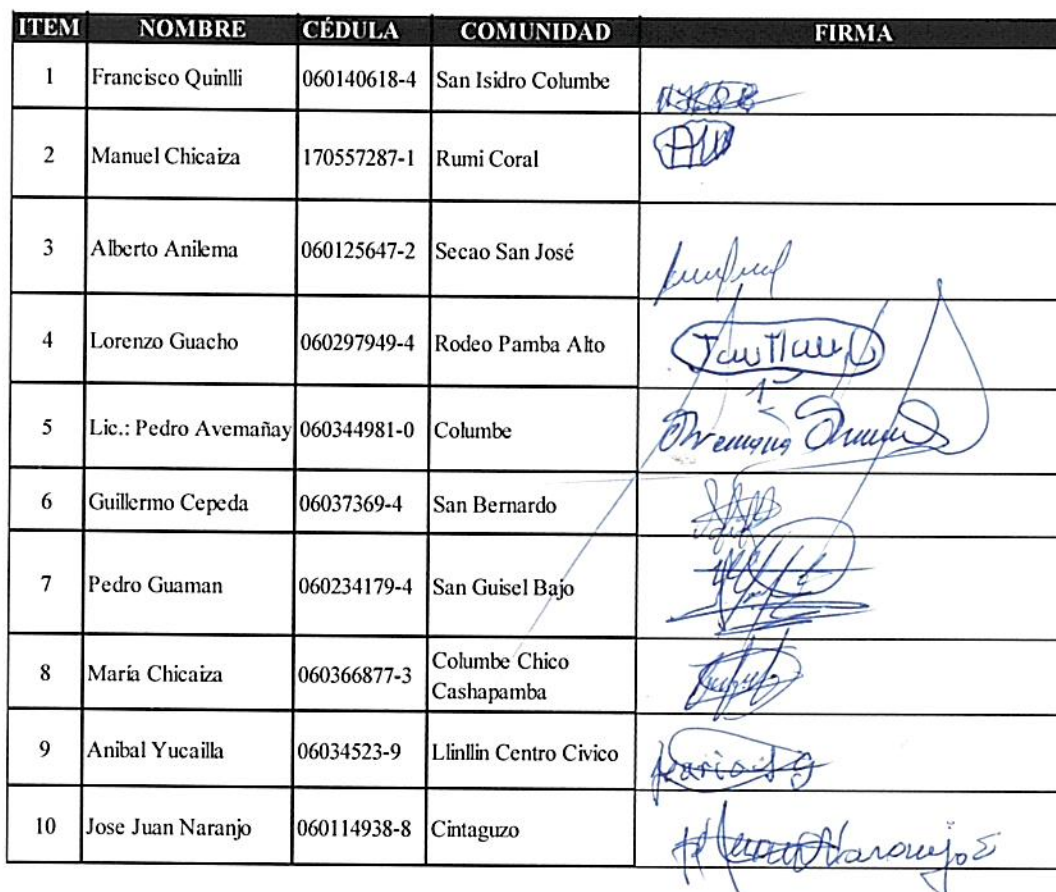 ITEM NOMBRE CÉDULA COMUNIDAD FIRMA
1 Francisco Quinlli 060140618-4 San Isidro Columbe
2 Manuel Chicaiza 170557287-1 Rumi Coral
3 Alberto Anilema 060125647-2 Secao San José
4 Lorenzo Guacho 060297949-4 Rodeo Pamba Alto
5 Lic.: Pedro Avemañay 060344981-0 Columbe
6 Guillermo Cepeda 06037369-4 San Bernardo
7 Pedro Guaman 060234179-4 San Guisel Bajo
8 María Chicaiza 060366877-3 Columbe Chico
Cashapamba
9 Anibal Yucailla 06034523-9 Llinllin Centro Civico
10 Jose Juan Naranjo 060114938-8 Cintaguzo